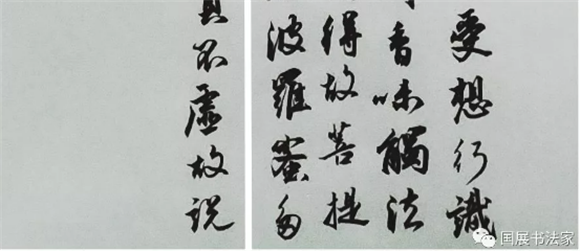 受想行識
香味觸法
得故菩提
波羅蜜多
不虛故説
国展书法家